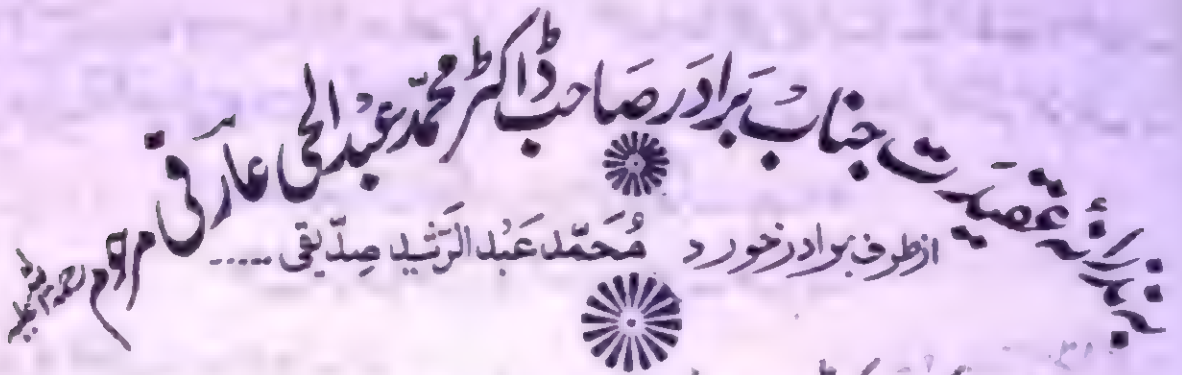 نذرانۂ عقیدت جناب برادر صاحب ڈاکٹر محمّد عبدالحی عارفی مرحوم رحمۃ اللہ علیہ
از طرف برادر خورد مُحَمَّد عَبْد الرَّشِید صِدّیقی .....